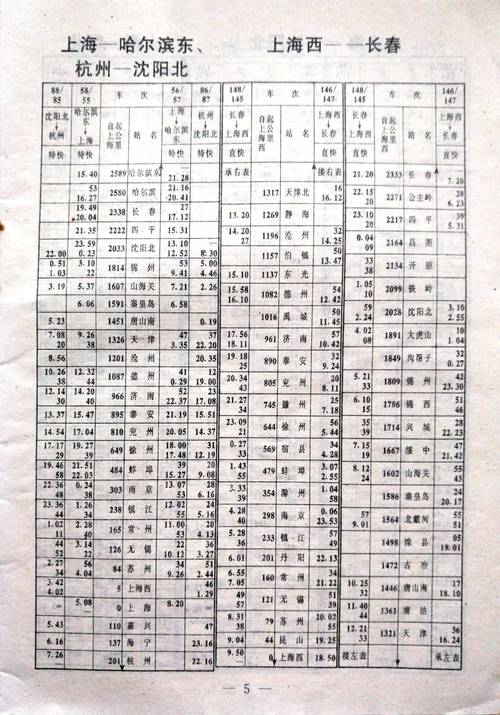 上海—哈尔滨东、
杭州—沈阳北
88/85 58/55 车次 56/57 86/87
沈阳北↓杭州 哈尔滨东↓上海 自起上公海里 站名 上海↓哈尔滨东 杭州↓沈阳北
特快 特快 特快 特快
15.40 2589 哈尔滨东 21.28
53 16.27 2580 哈尔滨 21.16 -20.41
19.49 20.04 2338 长春 27 17.12
21.35 2222 四平 15.31
22.00 23.59 0.23 2033 沈阳北 13.10 12.52 8.30
0.51 1.03 3.10 22 1814 锦州 53 9.41 5.00 4.46
3.19 5.37 1607 山海关 7.21 2.26
6.06 1591 秦皇岛 6.58
5.23 1451 唐山南 0.19
7.08 20 9.26 38 1326 天津 47 3.35 37 22.20
8.56 1201 沧州 20.35
10.26 38 12.32 44 1087 德州 41 0.29 12 19.00
12.14 30 14.20 40 966 济南 52 22.37 23 17.08
13.37 15.47 895 泰安 21.19 15.51
14.54 17.04 810 兖州 20.05 14.37
17.17 29 19.27 39 649 徐州 18.00 17.48 31 12.19
19.46 58 21.51 22.03 484 蚌埠 39 15.27 20 9.08
22.36 48 0.24 38 303 南京 13.07 53 28 6.16
23.36 44 1.26 34 238 镇江 12.02 55 24 5.16
1.02 11 2.28 40 165 常州 11.00 53 20 4.13
44 52 3.14 22 126 无锡 22 10.12 36 3.27
2.27 56 34 4.04 84 苏州 34 9.26 51 2.44
3.42 4.02 5 上海西 46 1.29
5.08 0 上海 8.20
5.43 110 嘉兴 47
6.16 137 海宁 23.16
7.26 201 杭州 22.16
上海西——长春
148/145 车次 146/147
长春↓上海西 自起上公海里西 站名 上海西↓长春
直快 直快
承右表 接右表
1317 天津北 16 16.12
13.20 1269 静海
14.20 27 1196 沧州 32 14.25
1157 泊镇 50 13.47
15.10 1137 东光
15.58 16.10 1082 德州 54 12.42
1016 禹城 50 11.45
17.56 18.11 961 济南 57 10.42
19.18 25 890 泰安 32 9.24
20.34 43 805 兖州 20 8.11
745 滕州 25 7.18
23.09 21 644 徐州 56 5.44
0.27 33 569 宿县 34 4.28
1.43 55 479 蚌埠 3.07 2.55
3.33 39 354 滁州 58 1.04
4.28 40 298 南京 0.06 23.53
5.28 36 233 镇江 57 49
6.01 201 丹阳 22.13
6.55 7.05 160 常州 34 21.22
49 57 121 无锡 51 39
8.31 38 79 苏州 20.02 55
9.04 44 昆山 19.25
9.50 0 上海西 18.50
148/145 车次 146/147
长春↓上海西 自起上公海里西 站名 上海西↓长春
直快 直快
21.20 2333 长春 7.20
22.15 20 2271 公主岭 28 6.23
23.10 20 2217 四平 39 5.31
0.04 09 2164 昌图
33 38 2134 开原
1.05 10 2099 铁岭
59 2.24 2028 沈阳北 3.10 2.55
4.02 08 1891 大虎山 10 1.04
1849 沟帮子 32 0.27
5.21 33 1809 锦州 42 23.30
6.10 15 1786 锦西 51 46
35 39 1714 兴城 28 22.23
7.15 19 1667 绥中 47 21.42
8.12 24 1602 山海关 55 43
1586 秦皇岛 24 20.17
57 9.01 1564 北戴河 55 51
1498 滦县 05 19.01
1472 古冶
10.25 32 1446 唐山南 17 18.10
11.40 44 1361 塘沽
12.21 33 1321 天津 36 16.24
接左表 承左表
— 5 —